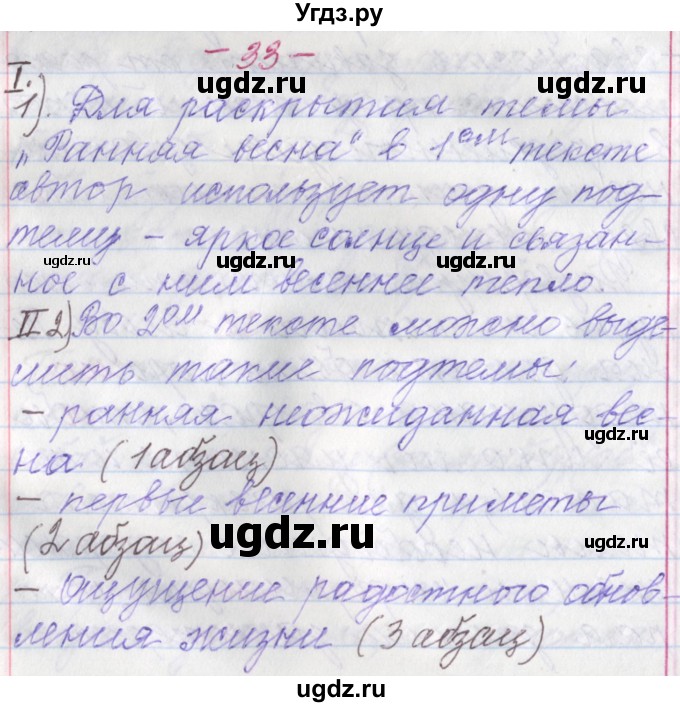 Угдз.ру
- 33 -
I.
1). Для раскрытия темы
„Ранняя весна" в 1ом тексте
автор использует одну под-
тему - яркое солнце и связан-
ное с ним весеннее тепло.
II 2) Во 2ом тексте можно выде-
лить такие подтемы:
- ранняя неожиданная вес-
на (1 абзац)
- первые весенние приметы
(2 абзац)
- Ощущение радостного обнов-
ления жизни (3 абзац)
ugdz.ru
ugdz.ru
ugdz.ru
ugdz.ru
ugdz.ru
ugdz.ru
ugdz.ru
ugdz.ru
ugdz.ru
ugdz.ru
ugdz.ru